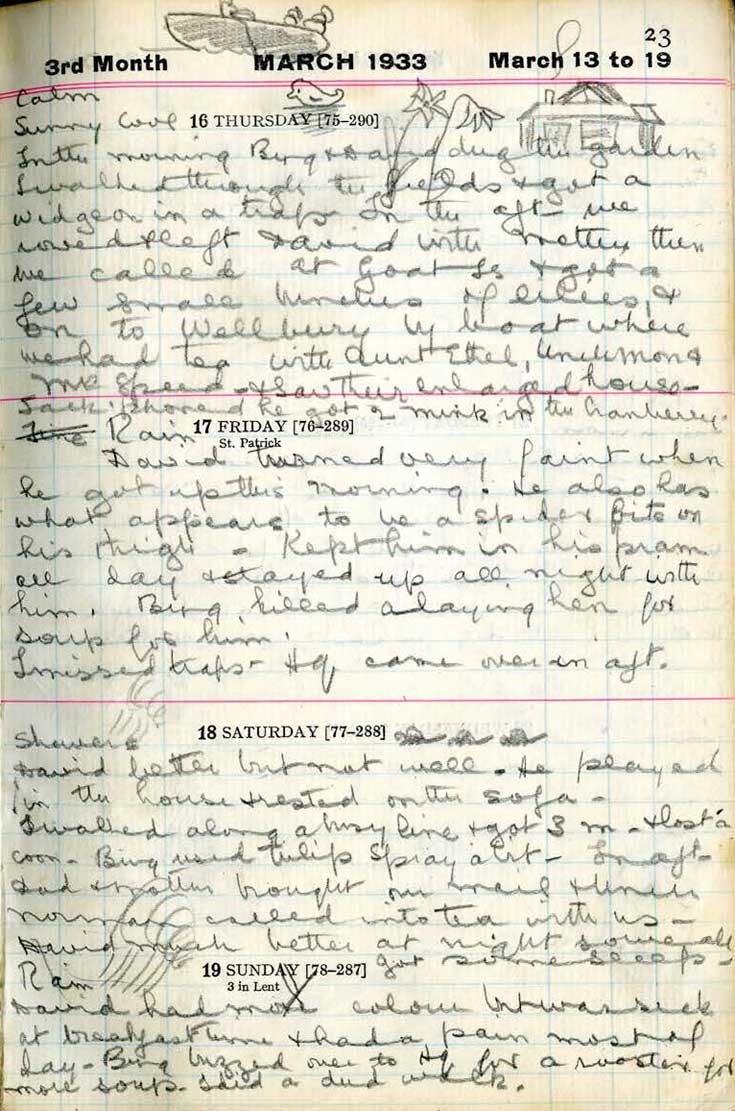 23
3rd Month MARCH 1933 March 13 to 19
Calm
Sunny Cool 16 THURSDAY [75–290]
In the morning Bing & David dug the garden
I walked through the fields & got a
widgeon in a trap In the aft– we
rowed & left David with Mother then
we called at Goat Is & got a
few small bunches of lilies, &
on to Wellbury by boat where
we had tea with Aunt Ethel, Uncle Mon &
Mr Speed – & saw their enlarged house –
Jack 'phoned he got 2 mink in the Cranberry.
Fine Rain 17 FRIDAY [76–289]
St. Patrick
David turned very faint when
he got up this morning. He also has
what appears to be a spider bite on
his thigh – Kept him in his pram
all day & stayed up all night with
him. Bing killed a laying hen for
soup for him.
I missed traps – came over in aft.
18 SATURDAY [77–288]
Showers
David better but not well – He played
in the house & rested on the sofa –
I walked along a busy line & got 3 m – & lost a
coon – Bing used tulip spray a bit – In aft–
Dad & Mother brought our mail & Uncle
Norman called in to tea with us –
David much better at night
got some sleep –
Rain 19 SUNDAY [78–287]
3 in Lent
David had more colour but was sick
at breakfast time & had a pain most of
day – Bing buzzed over to for a rooster for
more soup – said a dud week.